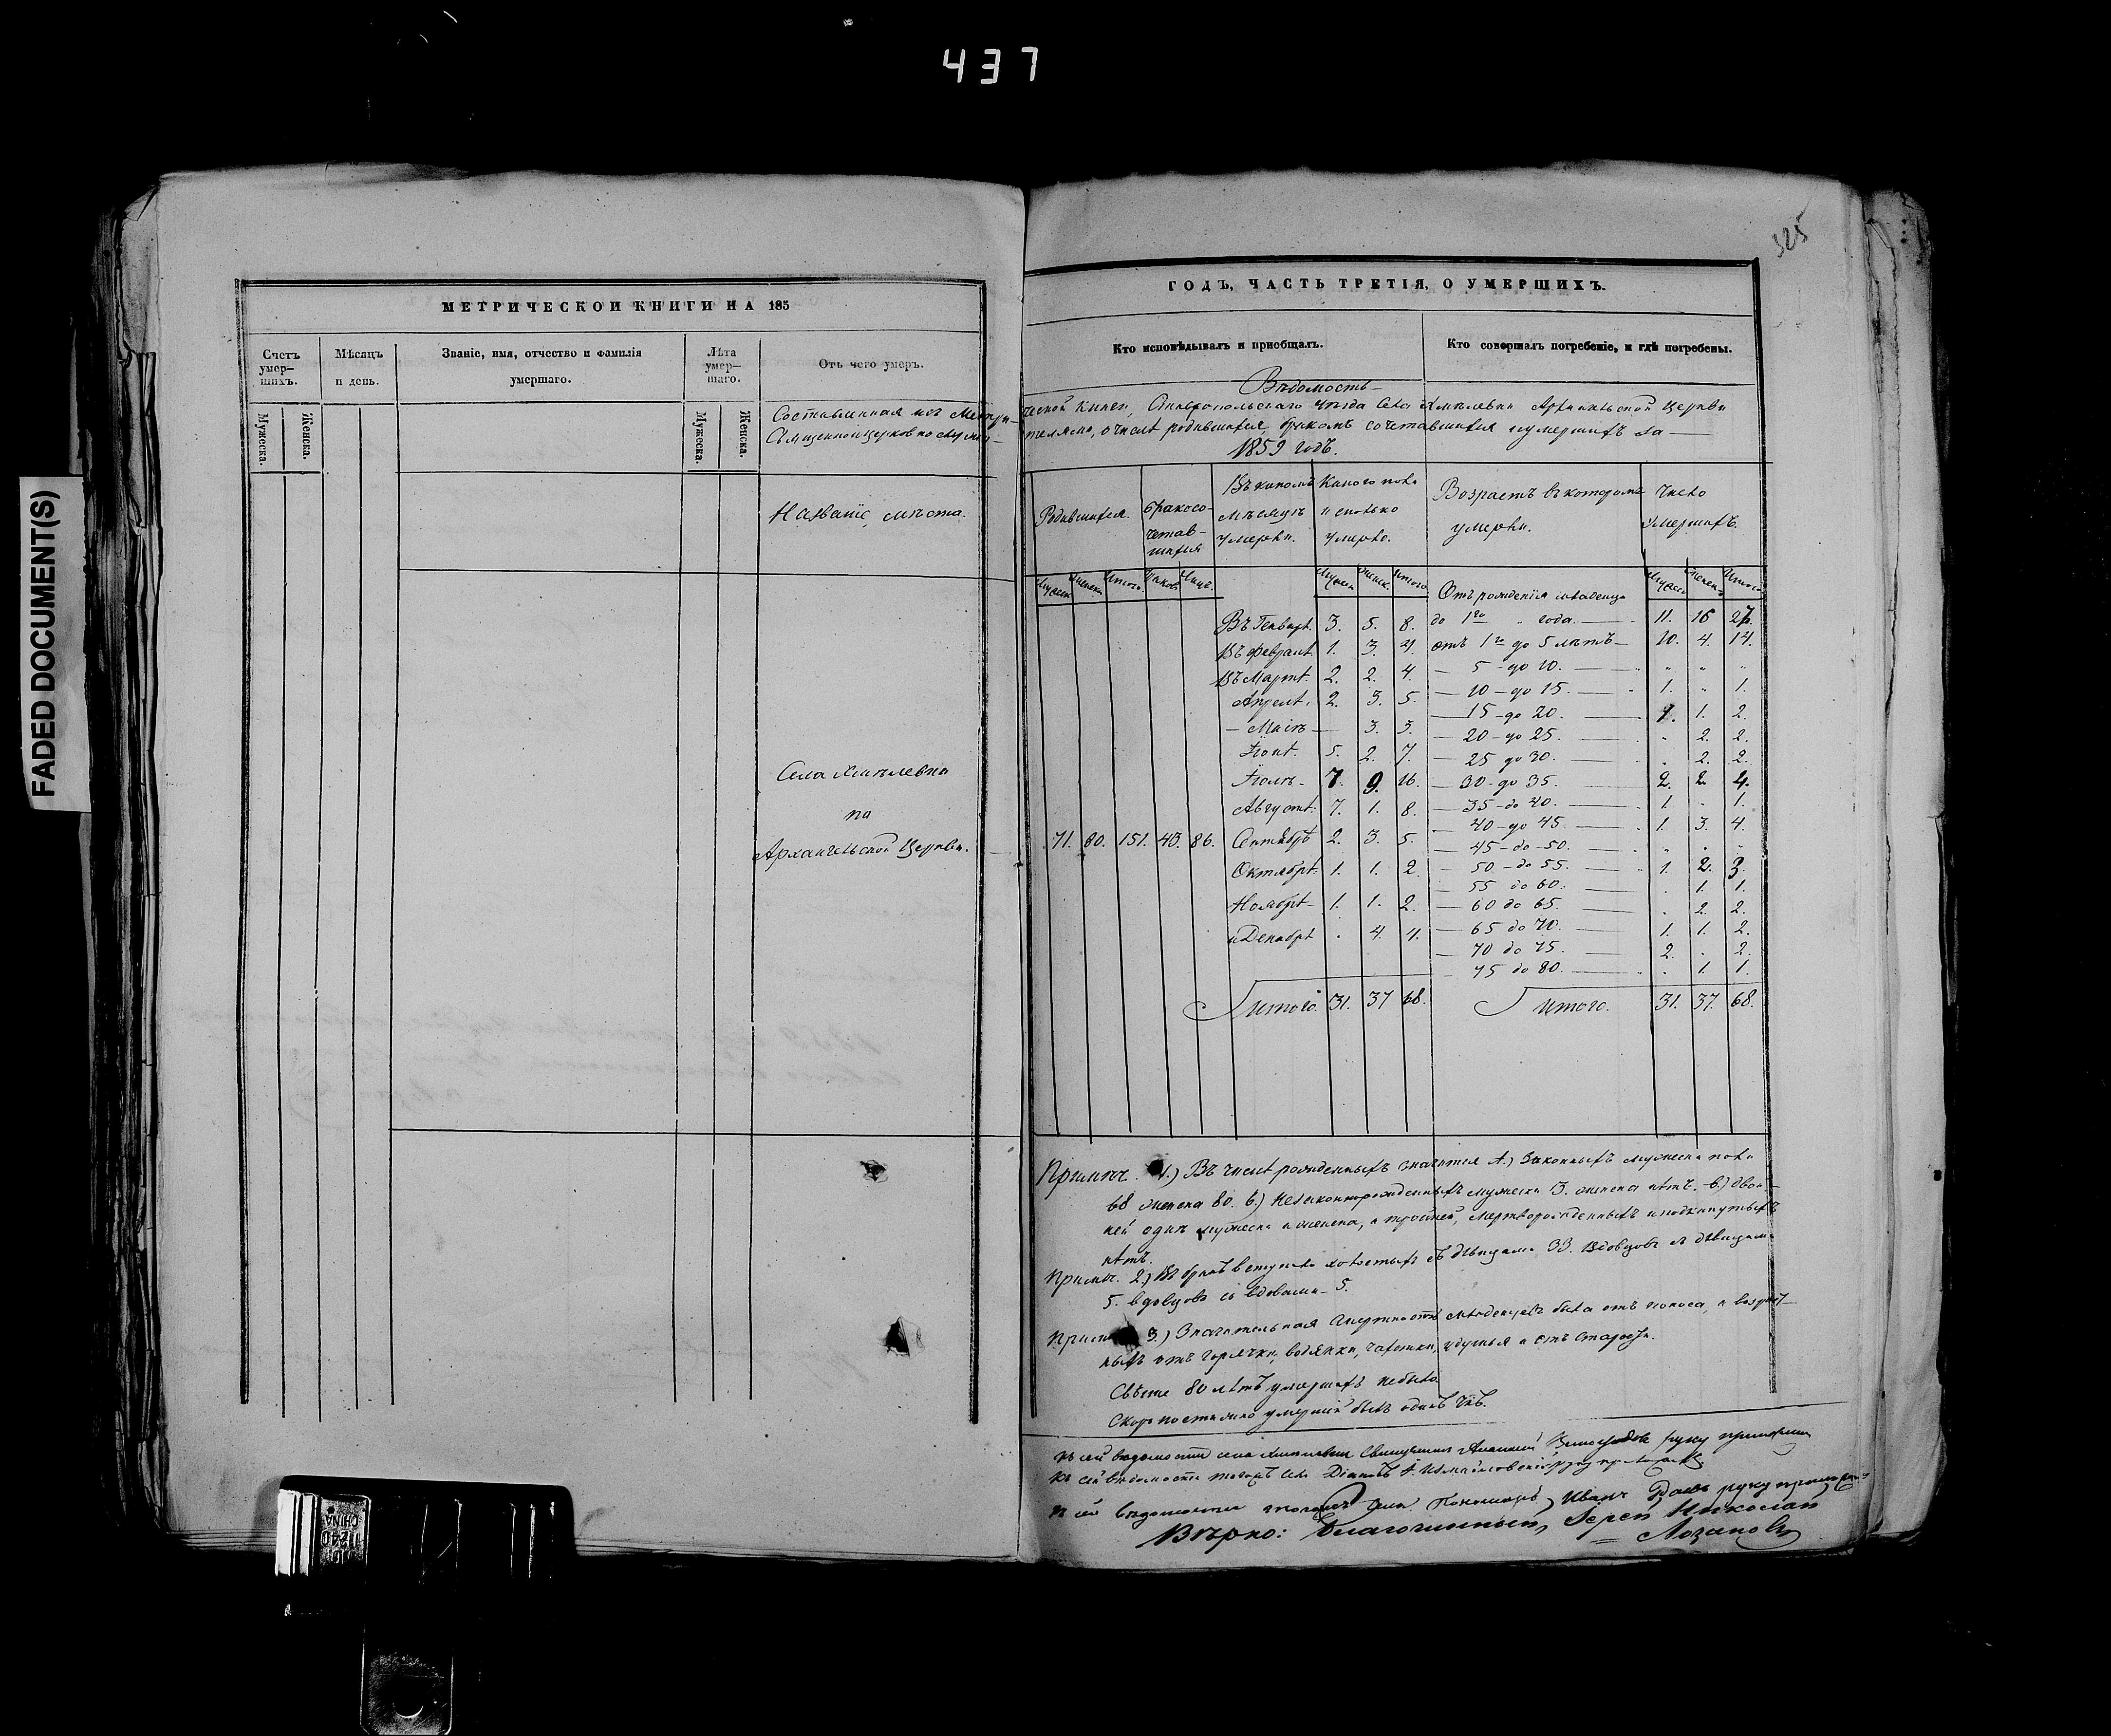 437
FADED DOCUMENT(S)
325
МЕТРИЧЕСКОЙ КНИГИ НА 185
ГОДЪ, ЧАСТЬ ТРЕТІЯ, О УМЕРШИХЪ.
Счетъ умер-шихъ.
Мѣсяцъ и день.
Званіе, имя, отчество и фамилія умершаго.
Лѣта умер-шаго.
Отъ чего умеръ.
Кто исповѣдывалъ и пріобщалъ.
Кто совершалъ погребеніе, и гдѣ погребены.
Мужеска. Женска. Мужеска. Женска.
Вѣдомость
Составленная изъ Метри-ческой книги, Ставропольскаго уѣзда села Хмѣлевки Архангельской церкви
о числѣ родившихся, бракомъ сочетавшихся и умершихъ за
1859 годъ.
Названіе мѣста.
Родившихся.
Бракосо-четав-шихся
Въ какомъ мѣсяцѣ умерли.
Какого пола и сколько умерло.
Возрастъ въ которомъ умерли.
Число умершихъ.
Мужеск Женска Итого.
Мужеск Женск. Итого
Мужеск Женск Итого
Отъ рожденія младенца
Въ Генварѣ. 3. 5. 8. до 1го " года. 11. 16 27.
Въ Февралѣ 1. 3. 4. отъ 1го до 5 лѣтъ 10. 4. 14.
Въ Мартѣ. 2. 2. 4. — 5 — до 10. " " "
Апрелѣ. 2. 3. 5. — 10 — до 15. 1. " 1.
— Маіѣ — 3. 3. — 15 — до 20. 1. 1. 2.
— 20 — до 25. " 2. 2.
Іюнѣ. 5. 2. 7. — 25 до 30. . 2. 2.
Іюлѣ. 7. 9. 16. — 30 — до 35. 2. 2. 4.
Августѣ. 7. 1. 8. — 35 — до 40. 1. . 1.
— 40 — до 45. 1. 3. 4.
Села Хмѣлевки
по
Архангельской Церкви.
71. 80. 151. 43. 86. Сентябрѣ 2. 3. 5. — 45 — до — 50. . . .
Октябрѣ. 1. 1. 2. — 50 — до 55. 1. 2. 3.
55 до 60. . 1. 1.
Ноябрѣ — 1. 1. 2. — 60 до 65. . 2. 2.
— 65 до 70. 1. 1. 2.
и Декабрѣ . 4. 4. — 70 до 75. 2. . 2.
— 75 до 80. . 1. 1.
Итого. 31. 37 68. Итого. 31. 37. 68.
Примѣч. 1.) Въ числѣ рожденныхъ значится А.) Законныхъ мужеска пола
68 женска 80. Б.) Незаконнорожденныхъ мужеска 3. женска нѣтъ. В.) двой-
ней одна мужеска и женска, а тройней, мертворожденныхъ и подкинутыхъ
нѣтъ.
Примѣч. 2.) Въ бракъ вступило холостыхъ съ дѣвицами 33. Вдовцовъ съ дѣвицами
5. вдовцовъ со вдовами — 5.
Примѣч. 3.) Значительная смертность младенцевъ была отъ поноса, а возраст-
ныхъ отъ горячки, водянки, чахотки, удушья и отъ старости.
Свыше 80 лѣтъ умершихъ небыло
Скоропостижно умершій былъ одинъ
Къ сей вѣдомости села Хмѣлевки Священникъ Виноградовъ руку приложилъ
Къ сей вѣдомости тогоже села Діаконъ Измайловскій руку приложилъ
Къ сей вѣдомости тогоже села Пономарь Иванъ руку приложилъ
Вѣрно: Благочинный, Іерей Николай